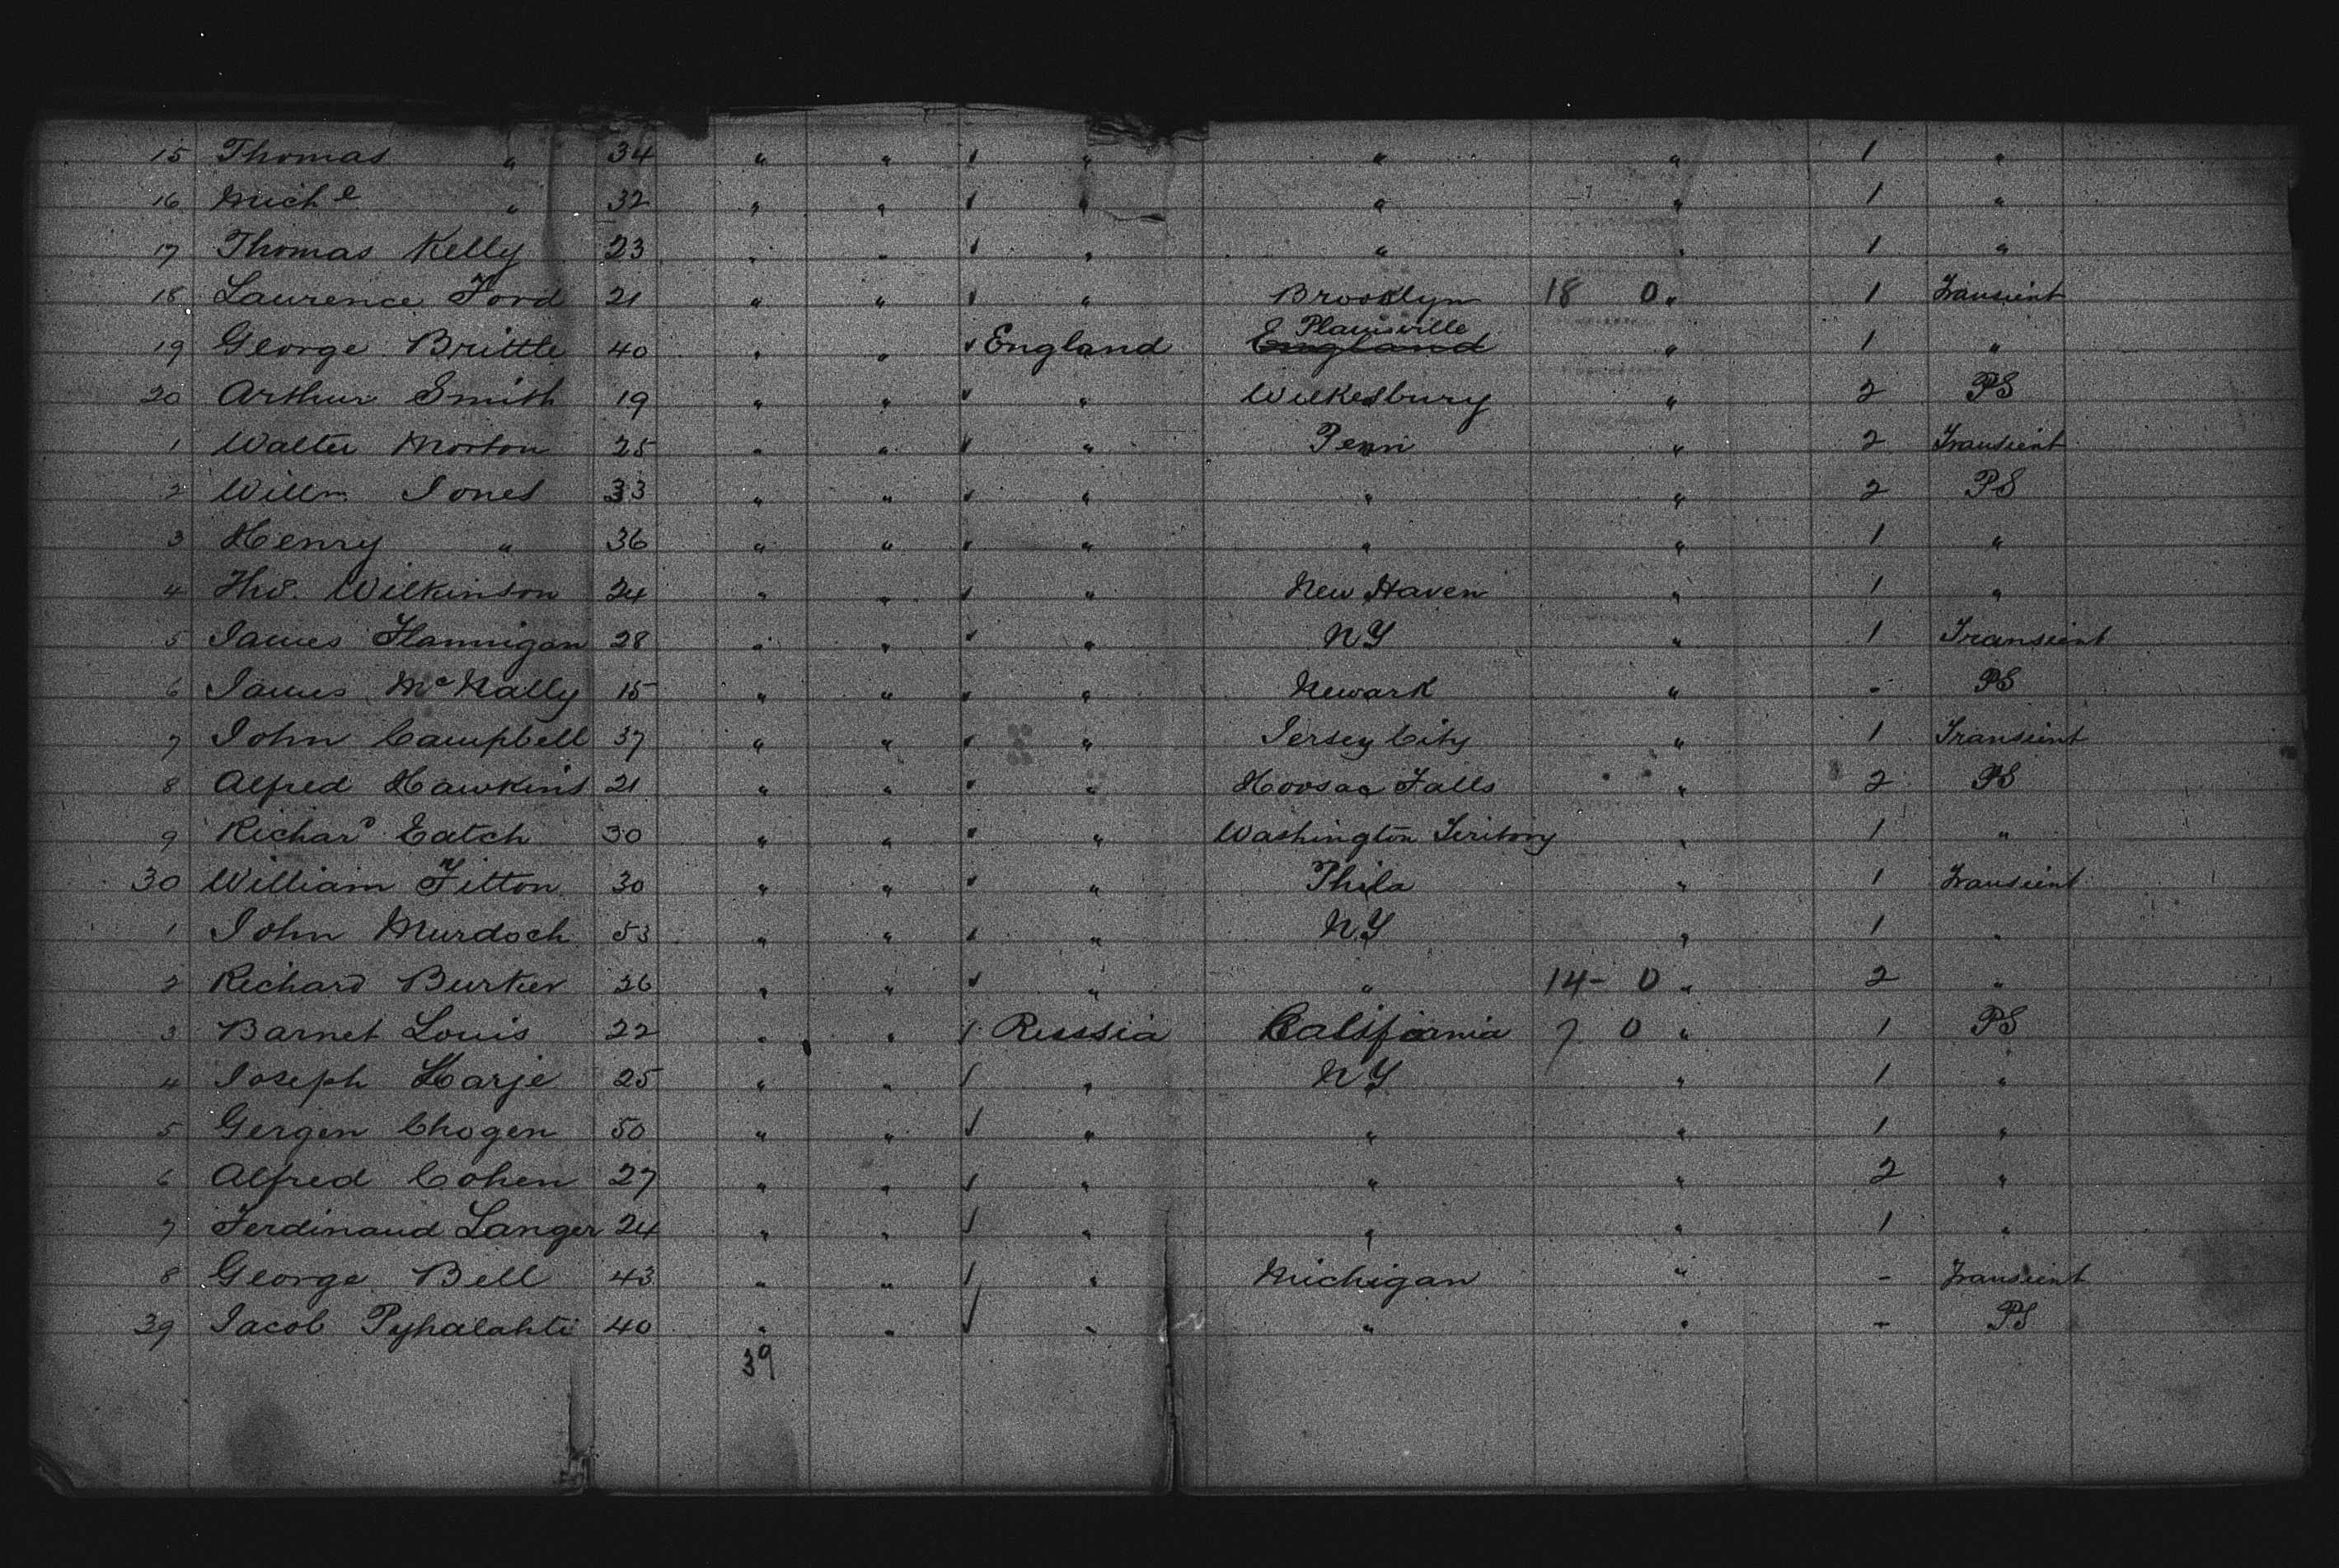 15 Thomas " 34 " " ✓ " " " 1 "
16 Michl " 32 " " ✓ " " " 1 "
17 Thomas Kelly 23 " " ✓ " " " 1 "
18 Laurence Ford 21 " " ✓ " Brooklyn 18 0 " 1 Transient
Plainsville
19 George Brittle 40 " " ✓ England England " 1 "
20 Arthur Smith 19 " " ✓ " Wilkesbury " 2 PS
1 Walter Morton 25 " " ✓ " Penn " 2 Transient
2 Willm Jones 33 " " ✓ " " " 2 PS
3 Henry " 36 " " ✓ " " " 1 "
4 Thos. Wilkinson 24 " " ✓ " New Haven " 1 "
5 James Flannigan 28 " " ✓ " NY " 1 Transient
6 James McNally 15 " " ✓ " Newark " - PS
7 John Campbell 37 " " ✓ " Jersey City " 1 Transient
8 Alfred Hawkins 21 " " ✓ " Hoosac Falls " 2 PS
9 Richard Eatch 30 " " ✓ " Washington Teritory " 1 "
30 William Fitton 30 " " ✓ " Phila " 1 Transient
1 John Murdoch 53 " " ✓ " NY " 1 "
2 Richard Burker 26 " " ✓ " " 14- 0 " 2 "
3 Barnet Louis 22 " " ✓ Russia California 7 0 " 1 PS
4 Joseph Harje 25 " " ✓ " NY " 1 "
5 Gergen Chogen 50 " " ✓ " " " 1 "
6 Alfred Cohen 27 " " ✓ " " " 2 "
7 Ferdinand Langer 24 " " ✓ " " " 1 "
8 George Bell 43 " " ✓ " Michigan " - Transient
39 Jacob Pyhalahti 40 " " ✓ " " " - PS
39